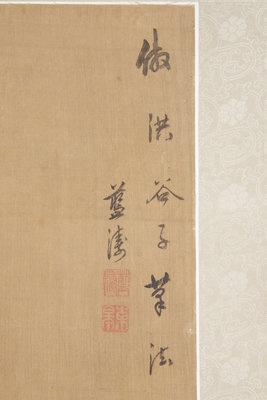 倣洪谷子筆法
藍濤